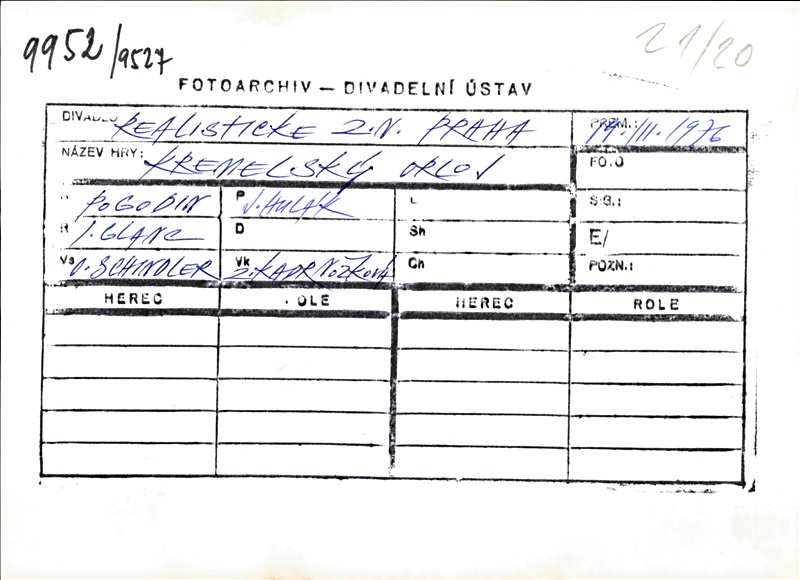 9952/9527
21/20
FOTOARCHIV — DIVADELNÍ ÚSTAV
DIVADLO REALISTICKE Z.N. PRAHA
PREM.: 19. III. 1976
NÁZEV HRY: KREMELSKÝ ORLOJ
FOTO
POGODIN P J. HULÁK
S:G.:
R J. GLANC D Sh
E/
Vs V. SCHINDLER Vk Z. KADRNOŽKOVÁ Ch
POZN.:
HEREC ROLE HEREC ROLE